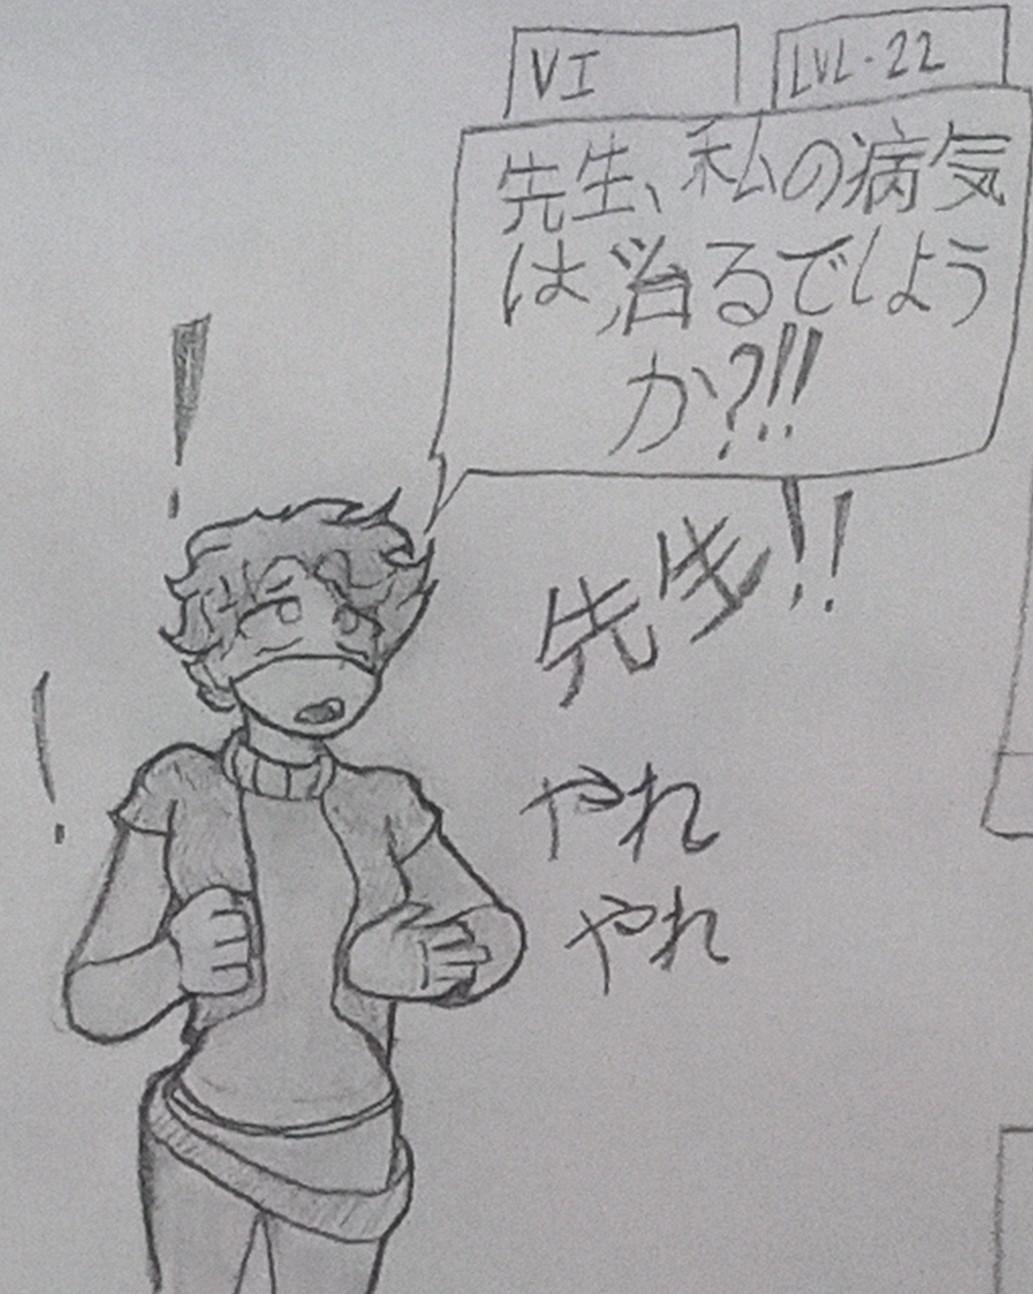 VI
LVL-22
先生、私の病気
は治るでしょう
か?!!
先生!!
やれ
やれ